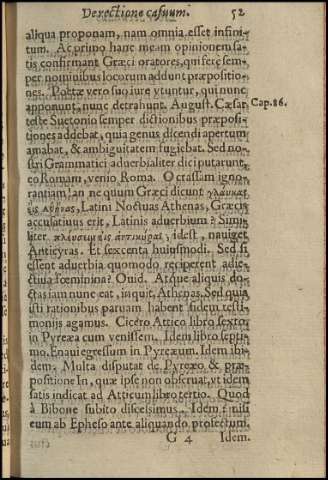 De rectione casuum. 52
aliqua proponam, nam omnia esset infini-
tum. Ac primo hanc meam opinionem sa-
tis confirmant Græci oratores, qui ferè sem-
per nominibus locorum addunt præpositio-
nes. Poëtæ vero suo iure vtuntur, qui nunc
apponunt, nunc detrahunt. August. Cæsar
Cap. 86.
teste Suetonio semper dictionibus præposi-
tiones addebat, quia genus dicendi apertum
amabat, & ambiguitatem fugiebat. Sed no-
stri Grammatici aduerbialiter dici putarunt,
eo Romam, venio Roma. O crassam igno-
rantiam! an ne quum Græci dicunt γλαύκας
εἰς ἀθήνας, Latini Noctuas Athenas, Græcis
accusatiuus erit, Latinis aduerbium? Simi-
liter πλεύσειας εἰς ἀντικύρας, idest, nauiget
Anticyras. Et sexcenta huiusmodi. Sed si
essent aduerbia quomodo reciperent adie-
ctiua fœminina? Ouid. Atque aliquis do-
ctas iam nunc eat, inquit, Athenas. Sed quia
isti rationibus paruam habent fidem testi-
monijs agamus. Cicero Attico libro sexto
in Pyreæa cum venissem. Idem libro septi-
mo. E naui egressum in Pyreæum. Idem ibi-
dem, Multa disputat de Pyreæo & præ-
positione In, quæ ipse non obseruat, vt idem
satis indicat ad Atticum libro tertio. Quod
à Bibone subito discessimus. Idem: nisi
eum ab Epheso ante aliquando profectum.
G 4 Idem.